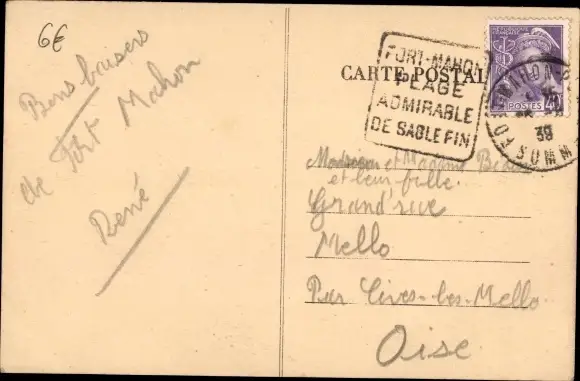 6€
Bons baisers
de Fort Mahon
René
CARTE POSTALE
FORT-MAHON
PLAGE
ADMIRABLE
DE SABLE FIN
POSTES 40
FORT-MAHON-P
38
SOMME
Monsieur et Madame
et leur fille
Grand'rue
Mello
Par Cires-les-Mello
Oise